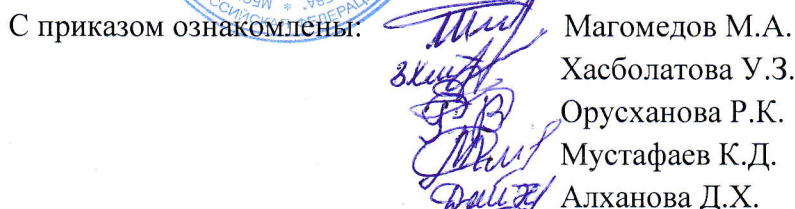 РОССИЙСКАЯ ФЕДЕРАЦ
С приказом ознакомлены: Магомедов М.А.
Хасболатова У.З.
Орусханова Р.К.
Мустафаев К.Д.
Алханова Д.Х.